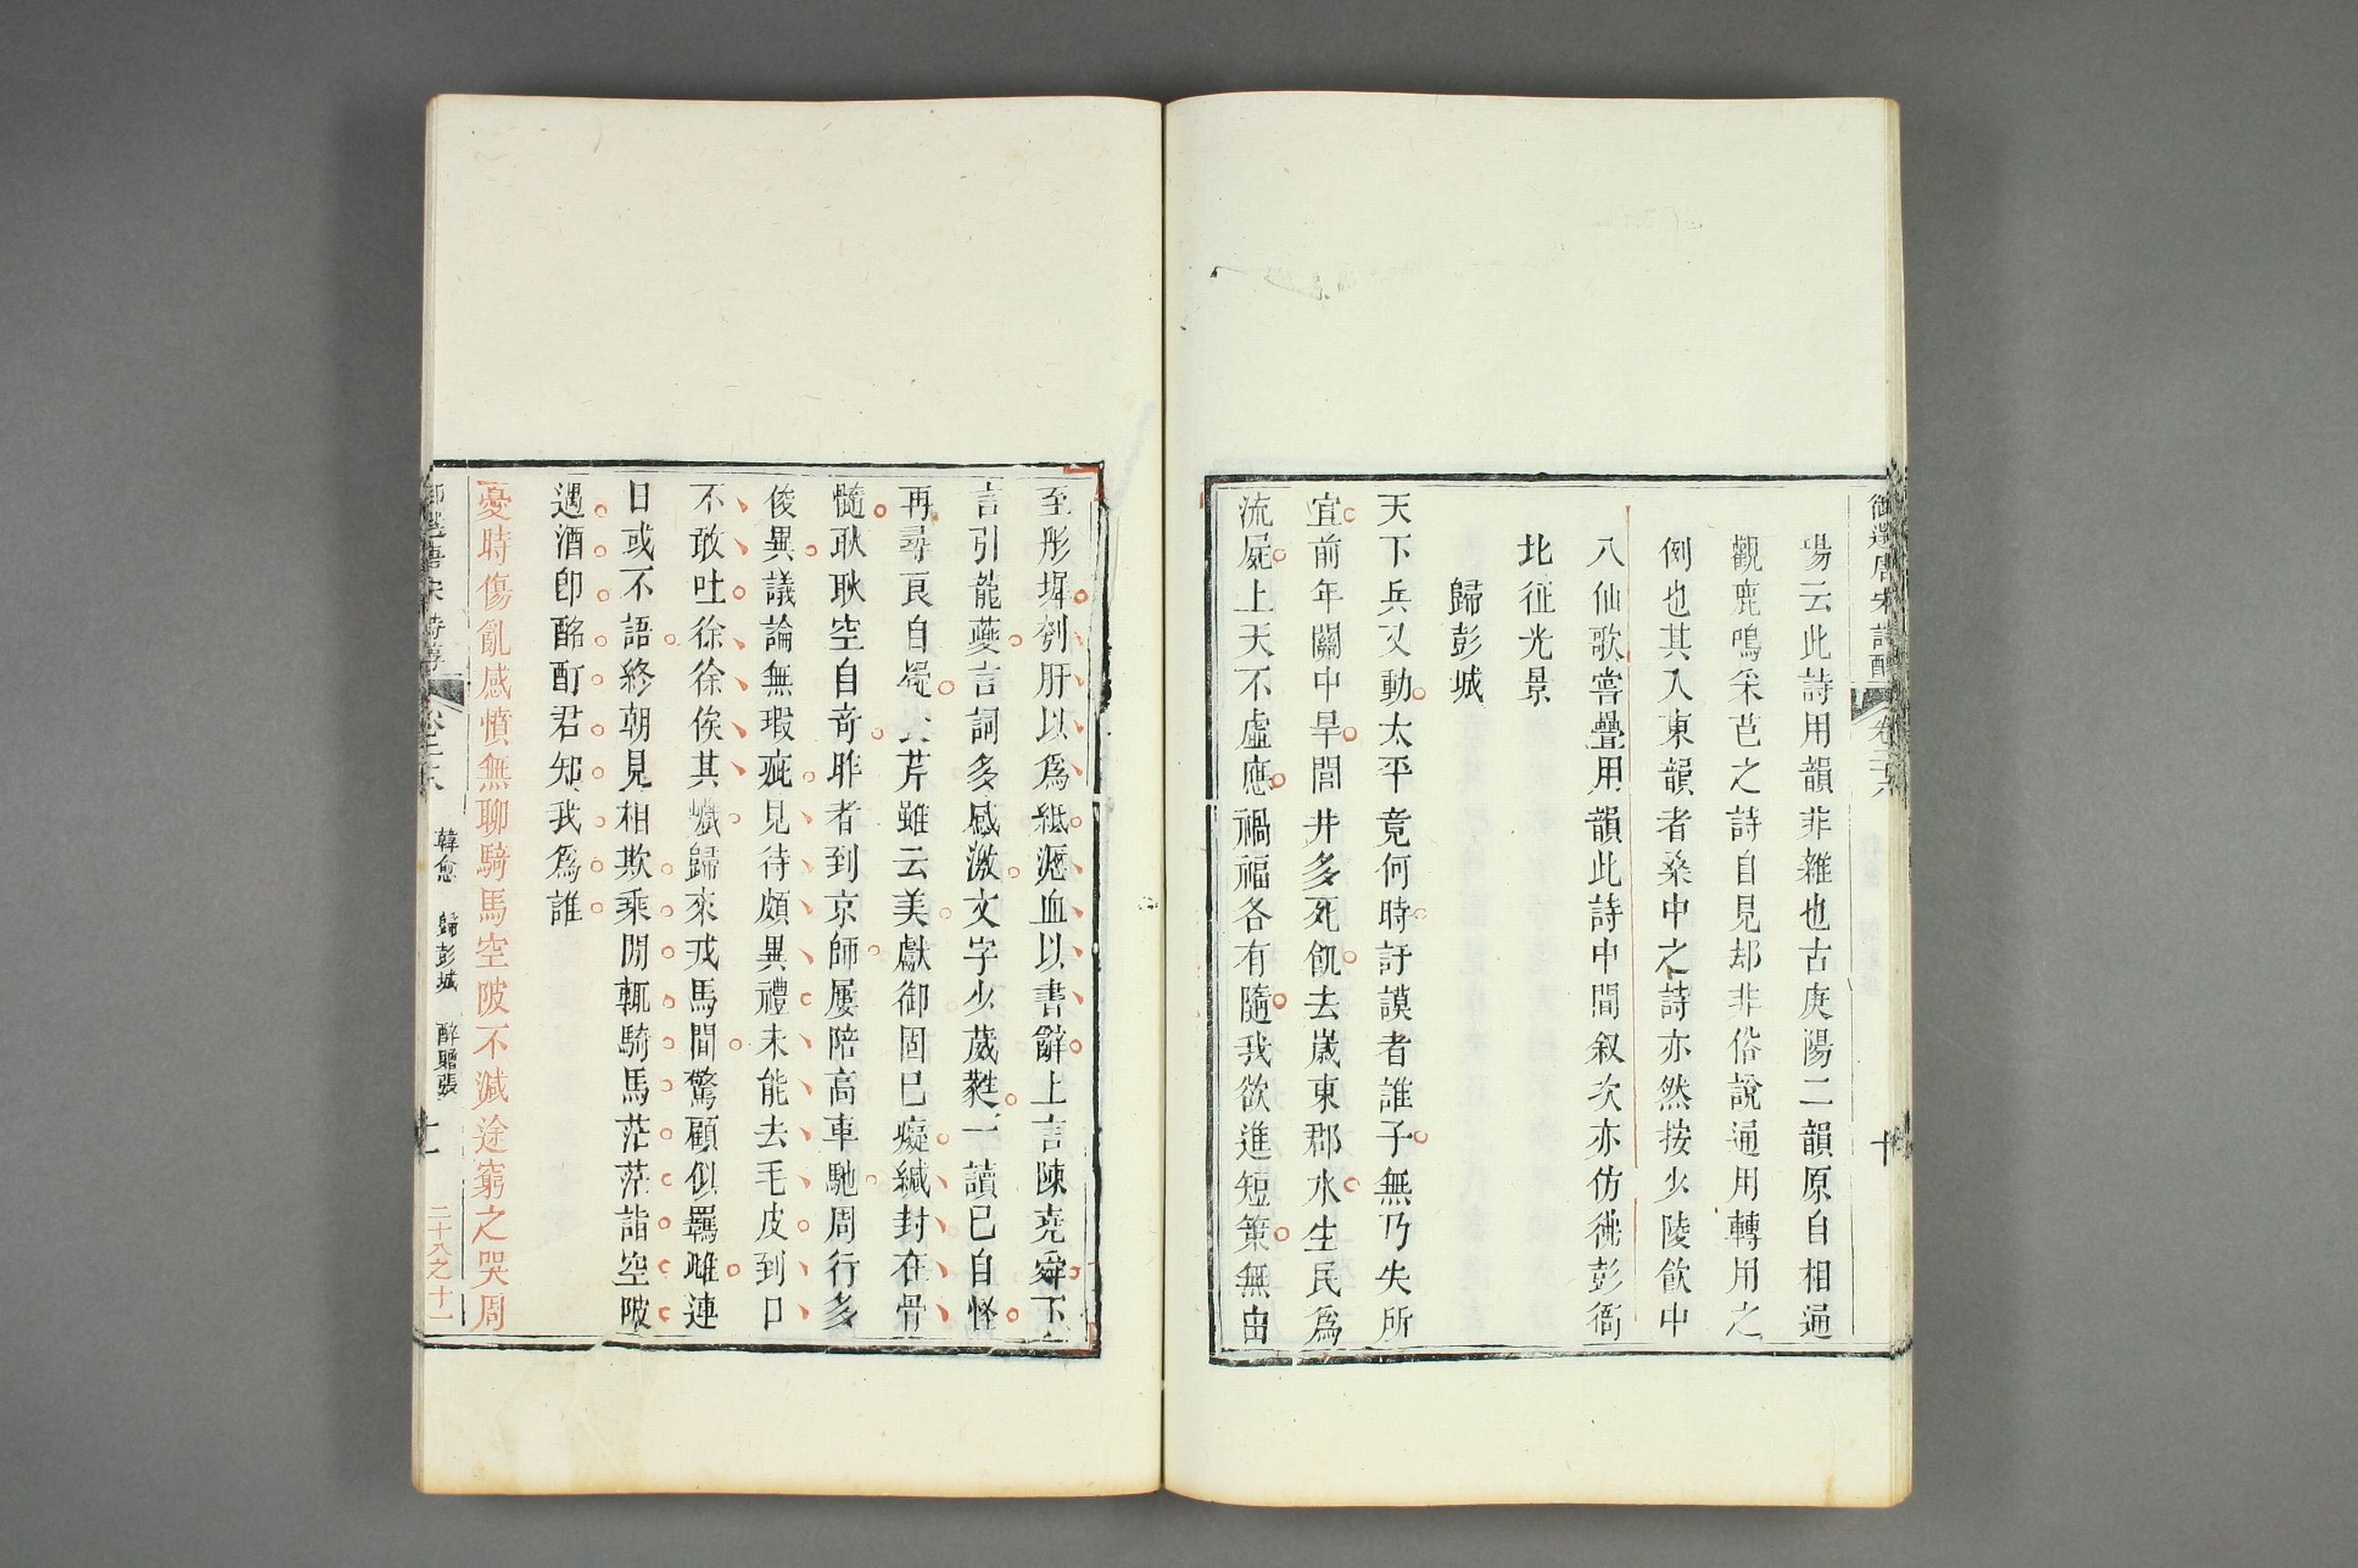 御選唐宋詩醇
卷二十八
十
陽云此詩用韻非雜也古庚陽二韻原自相通
觀鹿鳴采芑之詩自見却非俗說通用轉用之
例也其入東韻者桑中之詩亦然按少陵飲中
八仙歌嘗疊用韻此詩中間叙次亦仿彿彭衙
北征光景
歸彭城
天下兵又動太平竟何時訏謨者誰子無乃失所
宜前年關中旱閭井多死飢去歲東郡水生民爲
流屍上天不虛應禍福各有隨我欲進短策無由
至彤墀刳肝以爲紙瀝血以書辭上言陳堯舜下
言引龍夔言詞多感激文字少葳蕤一讀已自怪
再尋良自 芹雖云美獻御固已癡緘封在骨
髓耿耿空自奇昨者到京師屢陪高車馳周行多
俊異議論無瑕疵見待頗異禮未能去毛皮到口
不敢吐徐徐俟其巇歸來戎馬間驚顧似羈雌連
日或不語終朝見相欺乘閒輒騎馬茫茫詣空陂
遇酒卽酩酊君知我爲誰
憂時傷亂感憤無聊騎馬空陂不減途窮之哭周
御選唐宋詩醇
卷二十八
韓愈 歸彭城 醉贈張
十一
二十八之十一